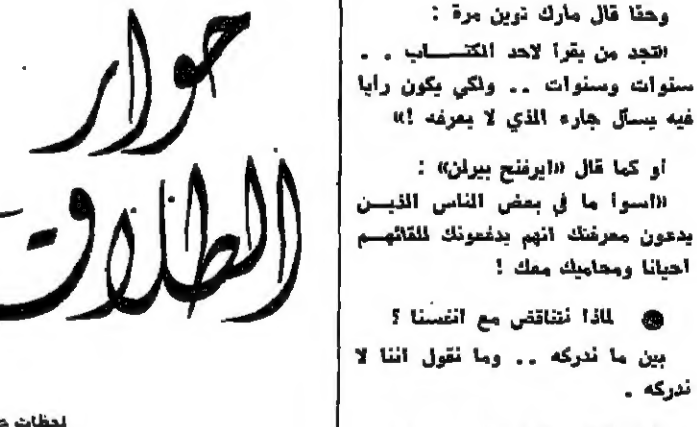 وحقا قال مارك توين مرة :
«تجد من يقرأ لاحد الكتـــاب . .
سنوات وسنوات .. ولكي يكون رأيا
فيه يسأل جاره الذي لا يعرفه !»
أو كما قال «ايرفنج بيرلن» :
«اسوأ ما في بعض الناس الذيــن
يدعون معرفتك انهم يدفعونك للقائهــم
احيانا ومحاميك معك !
● لماذا نتناقض مع انفسنا ؟
بين ما ندركه .. وما نقول اننا لا
ندركه .
حوار
الطلاق
لحظات